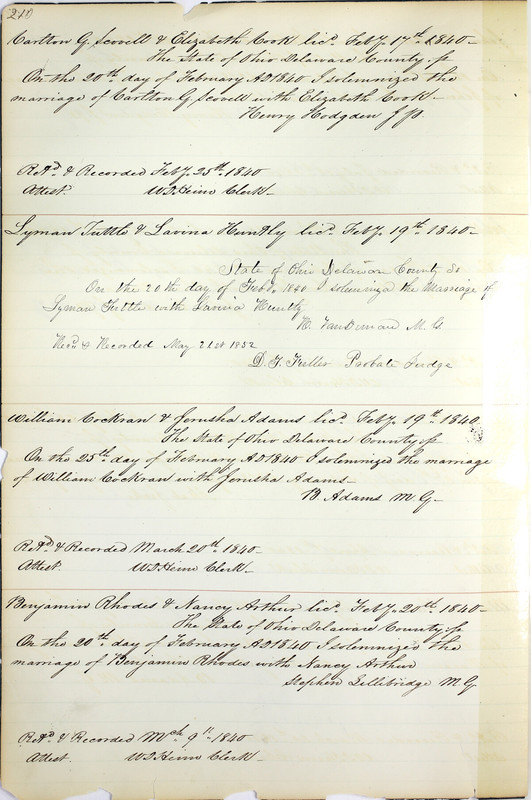 210
Carlton G. Scovell & Elizabeth Cook lic'd Feb'y 17th 1840-
The State of Ohio Delaware County ss
On the 20th day of February AD 1840 I solemnized the
marriage of Carlton G Scovell with Elizabeth Cook-
Henry Hodgden J p.
Ret'd & Recorded Feb'y 25th 1840
Attest. Clerk-
Lyman Tuttle & Lavina Huntly lic'd Feb'y 19th 1840-
State of Ohio Delaware County Ss
On the 20th day of Feb'y 1840 I solemniza the Marriage of
Lyman Tuttle with Lavina Huntly
M. G.
Rec'd & Recorded May 21st 1852
D. T. Fuller Probate Judge
William Cockran & Jerusha Adams lic'd Feb'y 19th 1840
The State of Ohio Delaware County ss
On the 25th day of February AD 1840 I solemnized the marriage
of William Cockran with Jerusha Adams-
B. Adams M G-
Ret'd & Recorded March 20th 1840-
Attest. Clerk-
Benjamin Rhodes & Nancy Arthur lic'd Feb'y 20th 1840-
The State of Ohio Delaware County ss
On the 20th day of February AD 1840 I solemnized the
marriage of Benjamin Rhodes with Nancy Arthur
Stephen Lillibridge M. G
Ret'd & Recorded Mch 9th 1840
Attest. Clerk-